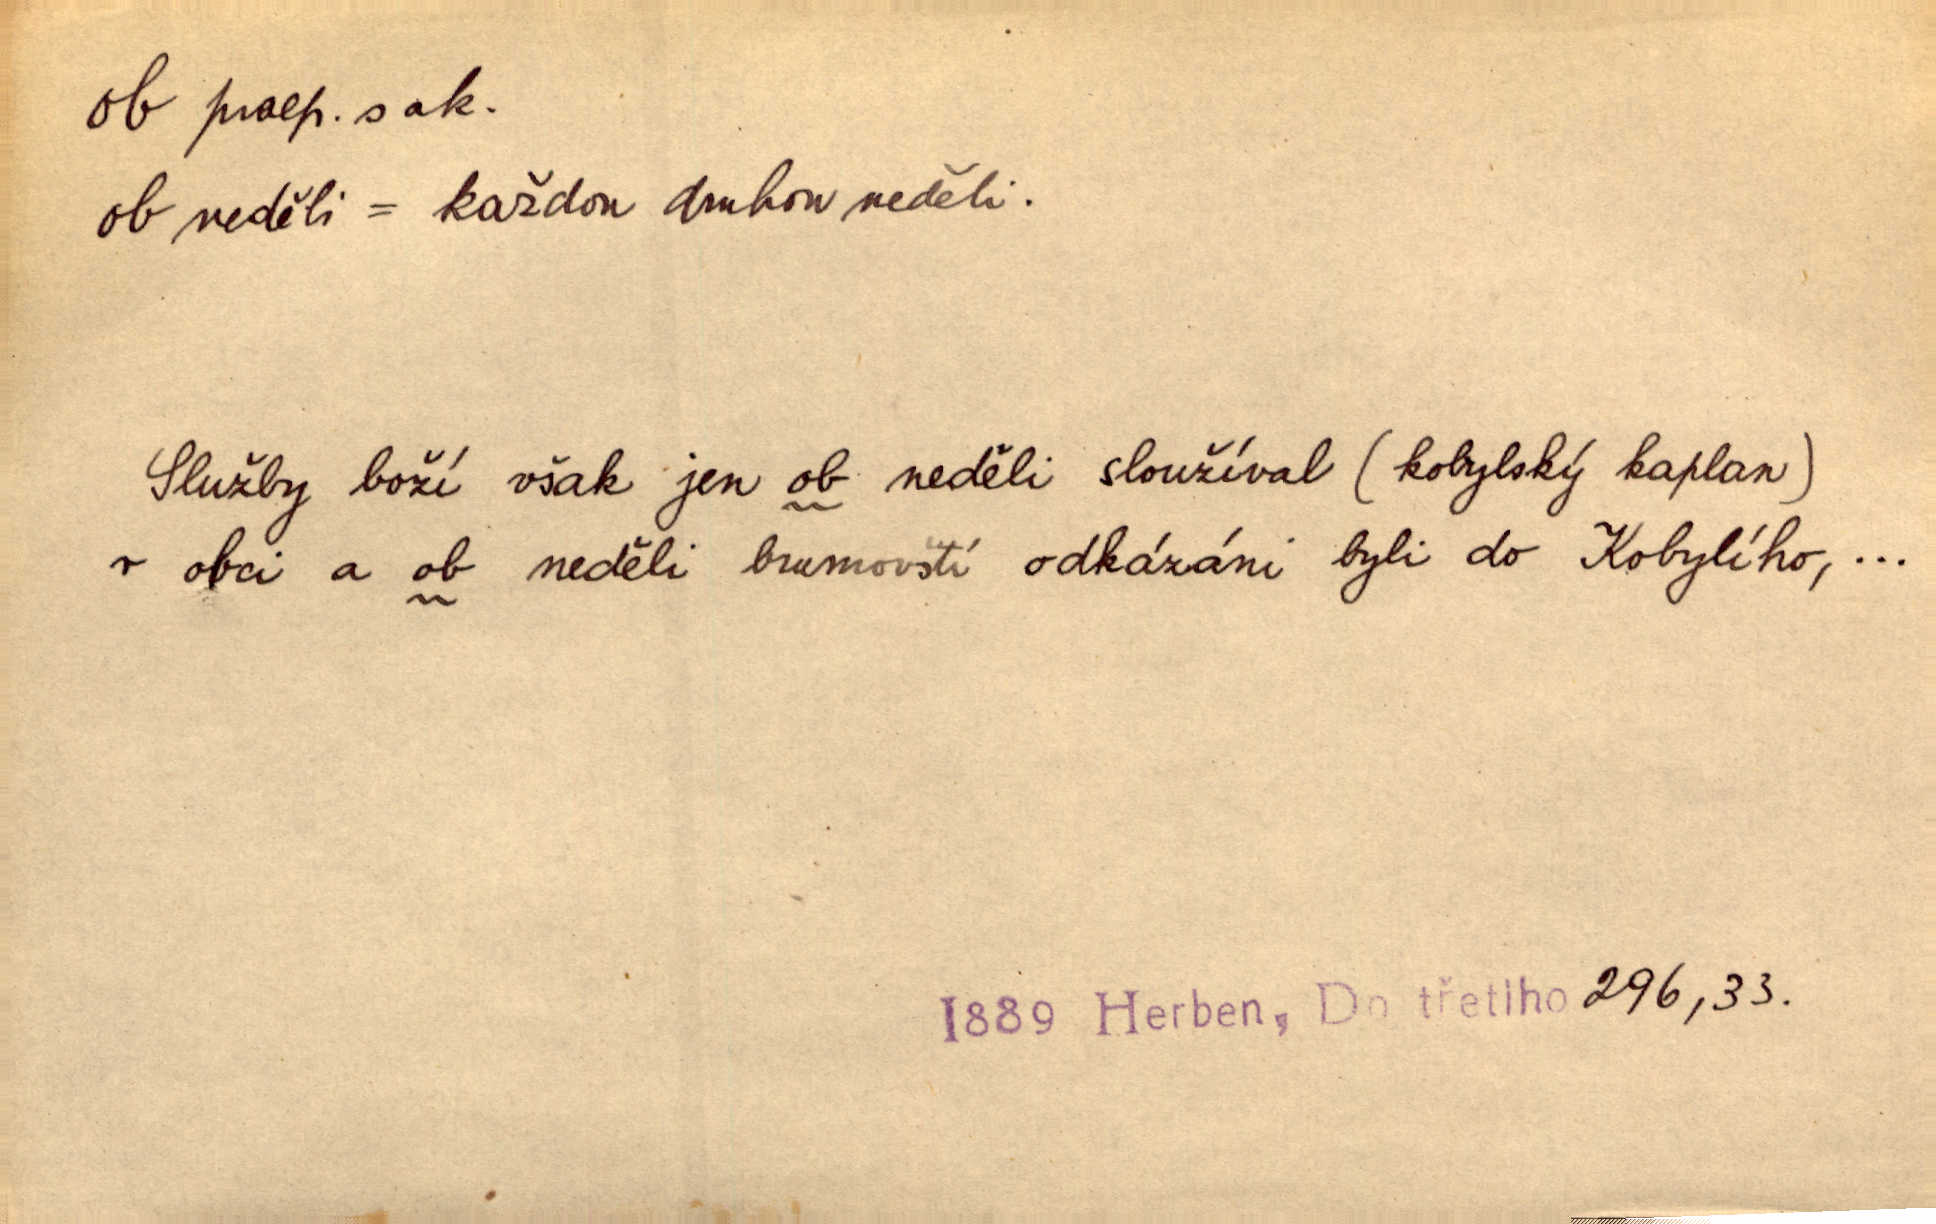 ob praep. s ak.
ob neděli = každou druhou neděli.
Služby boží však jen ob neděli sloužíval (kobylský kaplan)
v obci a ob neděli brumovští odkázáni byli do Kobylího, ...
1889 Herben, Do třetího 296,33.